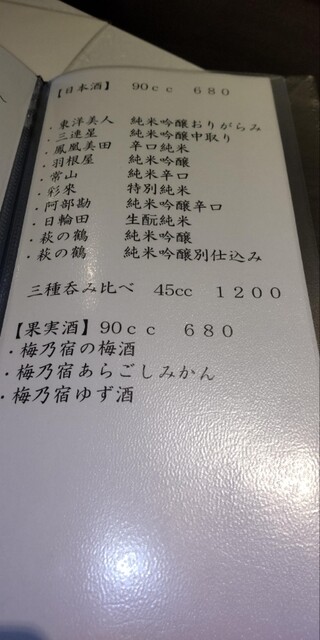 【日本酒】 90cc 680
・東洋美人 純米吟醸おりがらみ
・三連星 純米吟醸中取り
・鳳凰美田 辛口純米
・羽根屋 純米吟醸
・常山 純米辛口
・彩來 特別純米
・阿部勘 純米吟醸辛口
・日輪田 生酛純米
・萩の鶴 純米吟醸
・萩の鶴 純米吟醸別仕込み
三種呑み比べ 45cc 1200
【果実酒】90cc 680
・梅乃宿の梅酒
・梅乃宿あらごしみかん
・梅乃宿ゆず酒